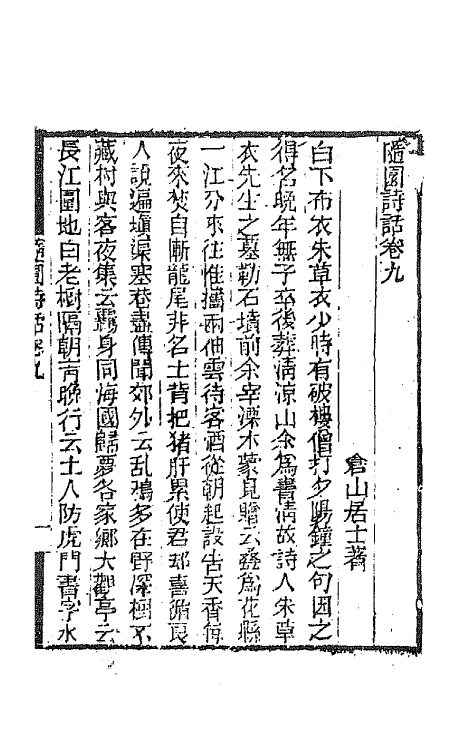 隨園詩話卷九
倉山居士著
白下布衣朱草衣少時有破樓僧打夕陽鐘之句因之
得名晚年無子卒後葬清凉山余為書清故詩人朱草
衣先生之墓勒石墳前余宰溧水蒙見贈云叠為花縣
一江分來往惟攜兩袖雲待客酒從朝起設告天香每
夜來焚自慚龍尾非名士肯把猪肝累使君却喜循良
人說遍填渠塞巷盡傳聞郊外云乱鴉多在野深樹不
藏村與客夜集云覊身同海國歸夢各家鄉大觀亭云
長江圍地白老樹隔朝青晚行云土人防虎門書字水
隨園詩話卷九
一